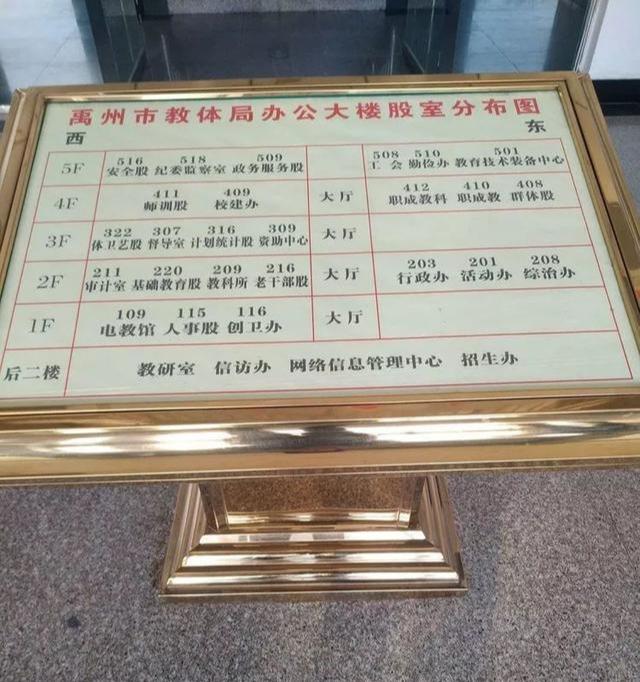 禹州市教体局办公大楼股室分布图
西 东
516 518 509 508 510 501
5F 安全股 纪委监察室 政务服务股 工 会 勤俭办 教育技术装备中心
411 409 412 410 408
4F 师训股 校建办 大厅 职成教科 职成教 群体股
322 307 316 309
3F 体卫艺股 督导室 计划统计股 资助中心 大厅
211 220 209 216 203 201 208
2F 审计室 基础教育股 教科所 老干部股 大厅 行政办 活动办 综治办
109 115 116
1F 电教馆 人事股 创卫办 大厅
后二楼 教研室 信访办 网络信息管理中心 招生办